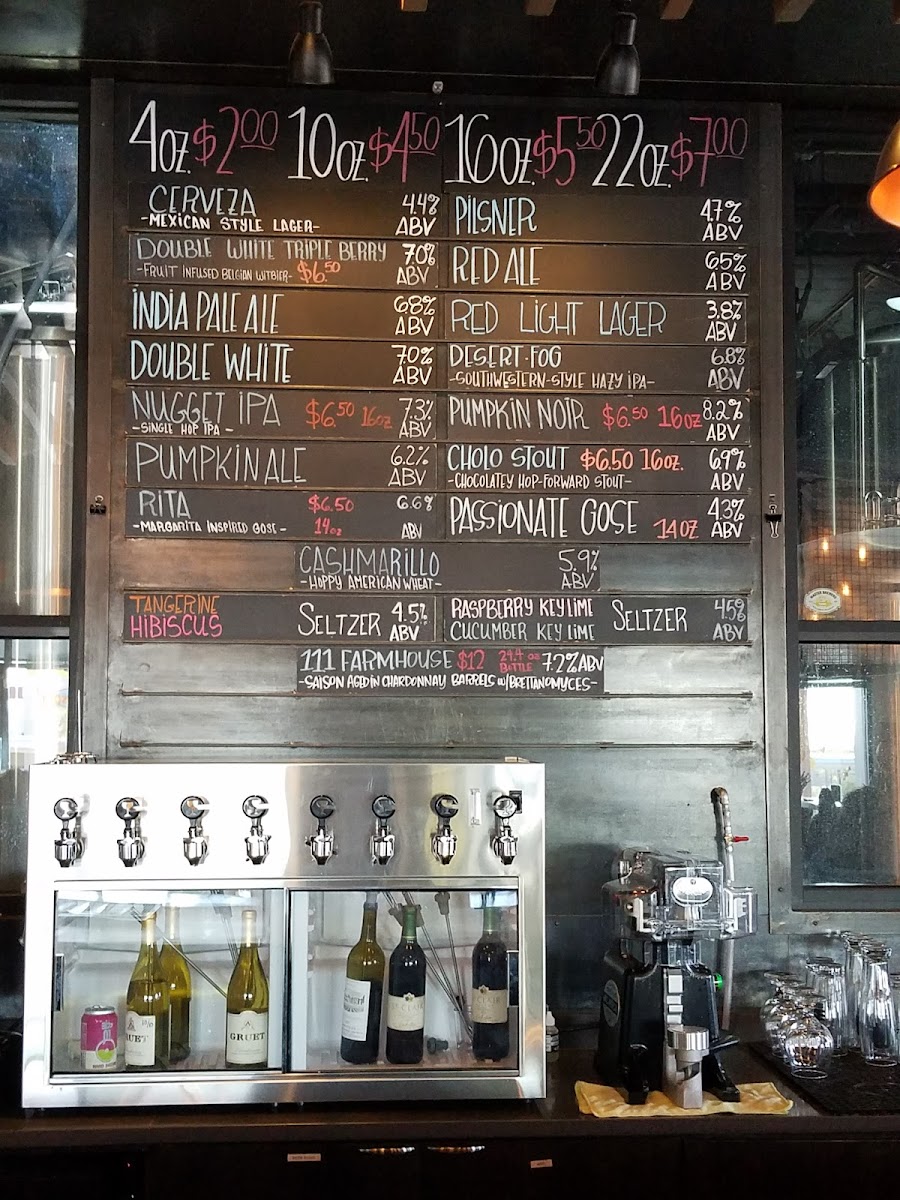 4oz. $2.00 10oz. $4.50 16oz. $5.50 22oz. $7.00
CERVEZA 4.4% ABV
-MEXICAN STYLE LAGER-
DOUBLE WHITE TRIPLE BERRY 7.0% ABV
-FRUIT INFUSED BELGIAN WITBIER- $6.50
INDIA PALE ALE 6.8% ABV
DOUBLE WHITE 7.0% ABV
NUGGET IPA $6.50 16oz 7.3% ABV
-SINGLE HOP IPA-
PUMPKIN ALE 6.2% ABV
RITA $6.50 6.6% ABV
-MARGARITA INSPIRED GOSE- 14oz
PILSNER 4.7% ABV
RED ALE 6.5% ABV
RED LIGHT LAGER 3.8% ABV
DESERT·FOG 6.8% ABV
-SOUTHWESTERN-STYLE HAZY IPA-
PUMPKIN NOIR $6.50 16oz 8.2% ABV
CHOLO STOUT $6.50 16oz. 6.9% ABV
-CHOCOLATEY HOP-FORWARD STOUT-
PASSIONATE GOSE 14oz 4.3% ABV
CASHMARILLO 5.9% ABV
-HOPPY AMERICAN WHEAT-
TANGERINE
HIBISCUS SELTZER 4.5% ABV
RASPBERRY KEY LIME
CUCUMBER KEY LIME SELTZER 4.5% ABV
111 FARMHOUSE $12 24.4 oz BOTTLE 7.2% ABV
-SAISON AGED IN CHARDONNAY BARRELS w/BRETTANOMYCES-
GRUET